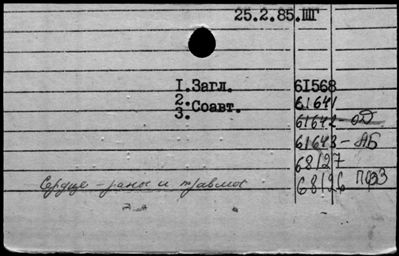 25.2.85.ШГ
1.Загл. 61568
2. 61641
3. Соавт. 61642 - ОД
61643 - АБ
68127
68126 ПФЗ
Сердце - раны и травмы